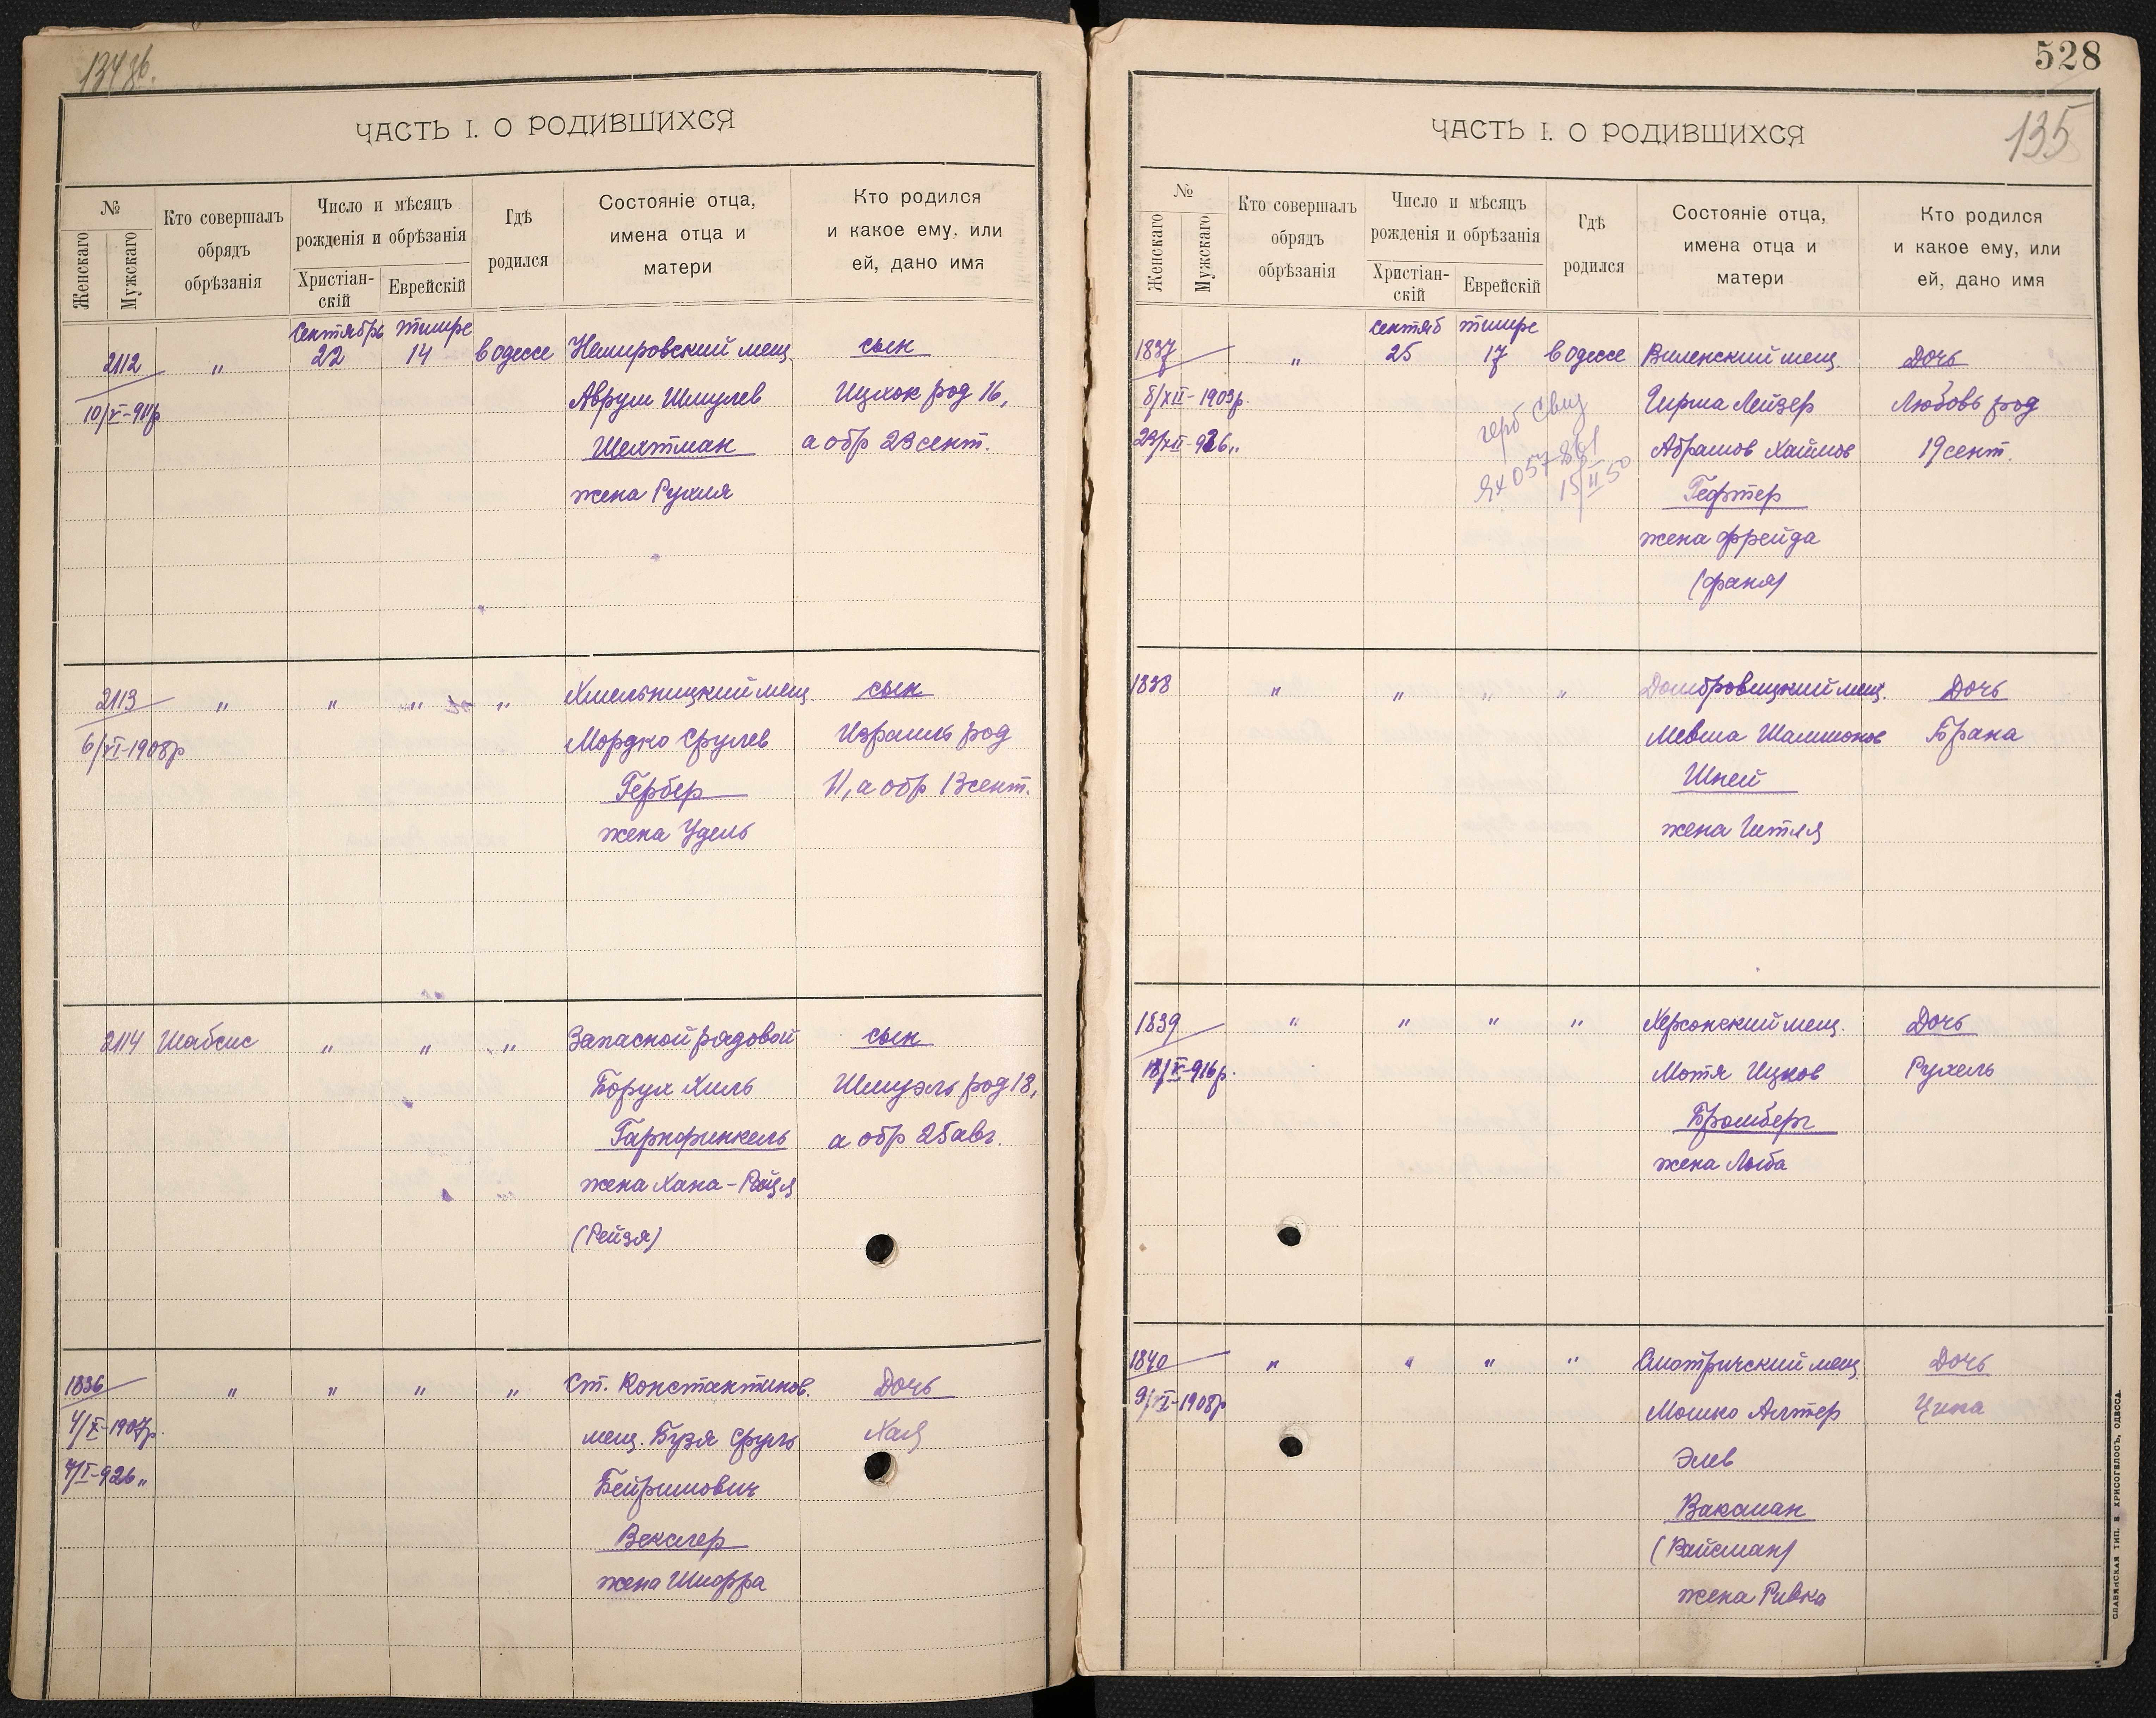 134 об.
ЧАСТЬ I. О РОДИВШИХСЯ
№
Женскаго
Мужскаго
Кто совершалъ
обрядъ
обрѣзанія
Число и мѣсяцъ
рожденія и обрѣзанія
Христіан-
скій
Еврейскій
Гдѣ
родился
Состояніе отца,
имена отца и
матери
Кто родился
и какое ему, или
ей, дано имя
Сентябрь тишре
2112 " 22 14 в одессе Немировский мещ. сын
10/V-911р Аврум Шмулев Ицхок род 16,
Шехтман а обр 23 сент.
жена Рухля
2113 " " " " Хмельницкий мещ. сын
6/VI-1908р Мордко Срулев Израиль род
Гербер 11, а обр 13 сент.
жена Удель
2114 Шабсис " " " Запасной рядовой сын
Борух Хиль Шмуэль род 18,
Гарфинкель а обр 25 авг.
жена Хана-Рейзя
(Рейзя)
1836 " " " " Ст. Константинов. Дочь
4/X-1907р. мещ. Бузя Сруль Хая
7/I-926 " Бейришович
Векслер
жена Шпорра
528
135
ЧАСТЬ I. О РОДИВШИХСЯ
№
Женскаго
Мужскаго
Кто совершалъ
обрядъ
обрѣзанія
Число и мѣсяцъ
рожденія и обрѣзанія
Христіан-
скій
Еврейскій
Гдѣ
родился
Состояніе отца,
имена отца и
матери
Кто родился
и какое ему, или
ей, дано имя
сентяб тишре
1837 " 25 17 в одессе Виленский мещ. Дочь
8/XII-1903р. герб Свид Гирша Лейзер Любовь род
23/XII-926 " ЯХ 057861 Абрамов Хаимов 19 сент.
15/II 50 Гефтер
жена Фрейда
(Фаня)
1838 " " " " Домбровицкий мещ. Дочь
Мевша Шамшонов Брана
Шней
жена Гитля
1839 " " " " Херсонский мещ. Дочь
18/X-916р. Мотя Ицков Рухель
Бромберг
жена Лыба
1840 " " " " Смотричский мещ. Дочь
9/VI-1908р Мошко Алтер Ципа
Элев
Ваксман
(Вайсман)
жена Ривка
СЛАВЯНСКАЯ ТИП. Е. ХРИСОГЕЛОСЪ, ОДЕССА.